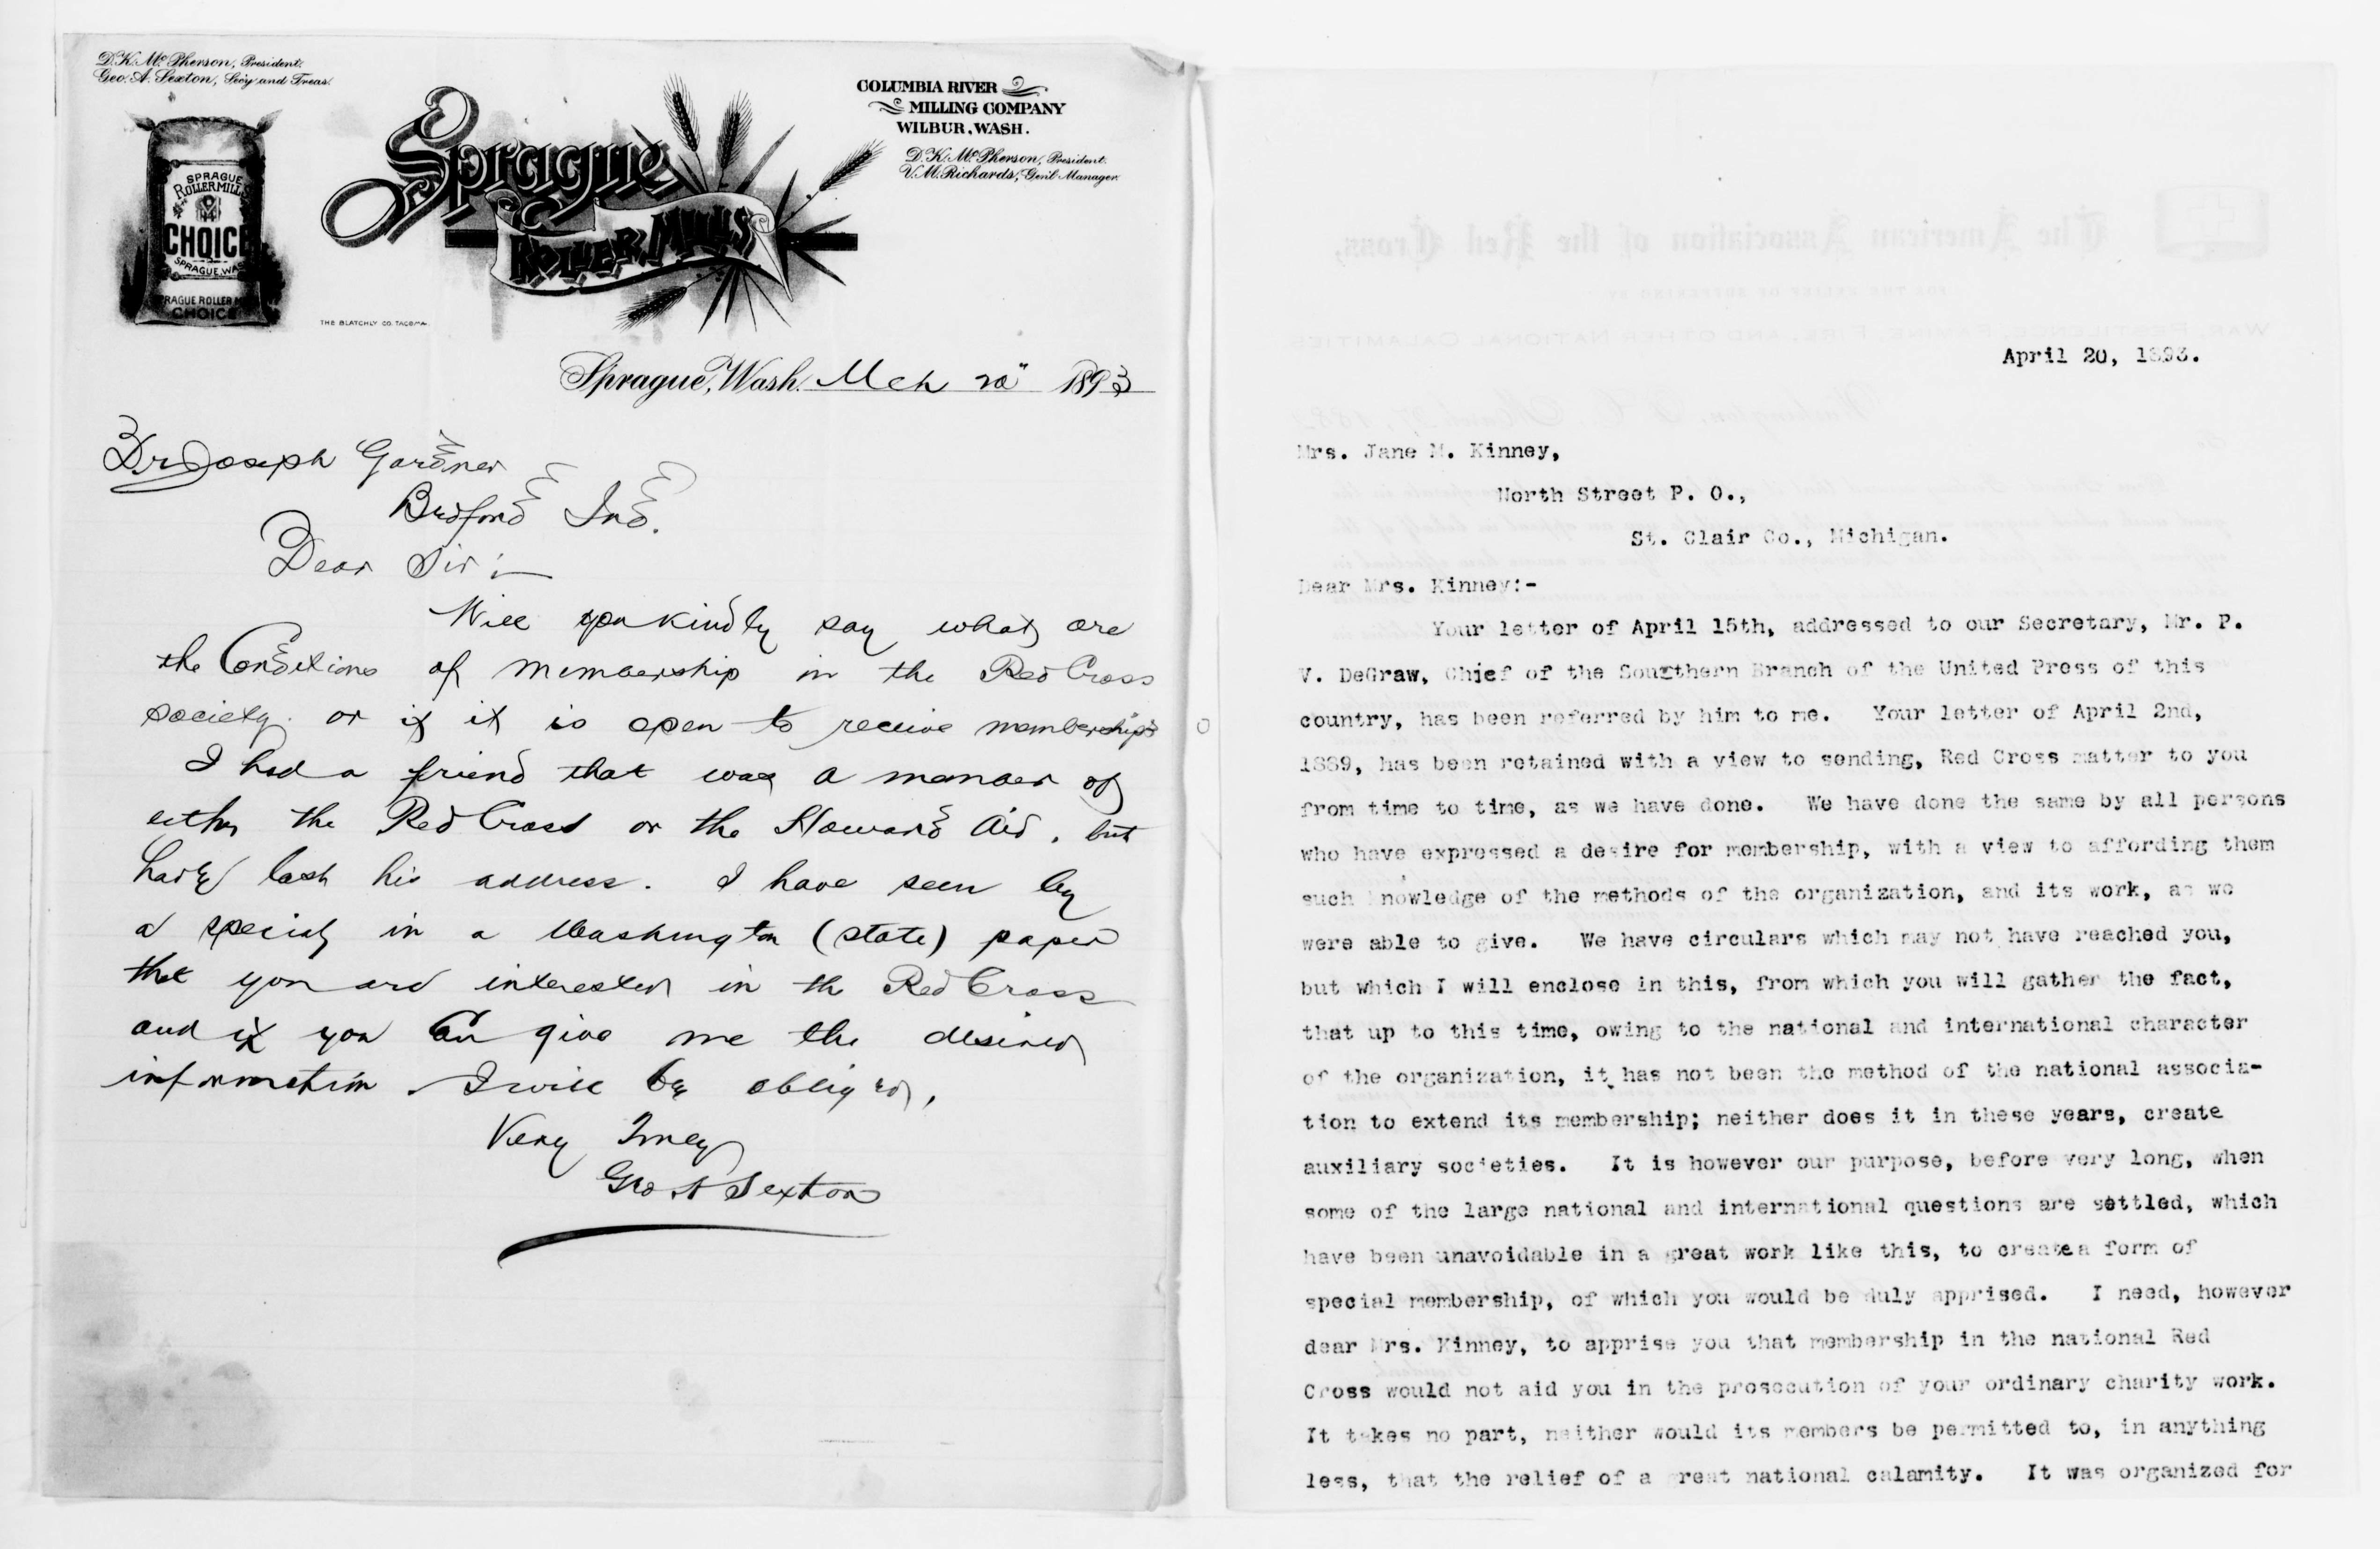 D. K. McPherson, President.
Geo. A. Sexton, Sec'y and Treas.
SPRAGUE
ROLLER MILLS
CHOICE
SPRAGUE, WAS
RAGUE ROLLER M
CHOICE
Sprague
ROLLER MILLS
THE BLATCHLY CO. TACOMA.
COLUMBIA RIVER
MILLING COMPANY
WILBUR, WASH.
D. K. McPherson, President.
V. M. Richards, Gen'l Manager.
Sprague, Wash. Mch 20" 1893
Dr Joseph Gardner
Bedford Ind.
Dear Sir :—
Will you kindly say what are
the Conditions of membership in the Red Cross
society. or if it is open to receive memberships
I had a friend that was a member of
either the Red Cross or the Howard Aid, but
have lost his address. I have seen by
a special in a Washington (state) paper
that you are interested in the Red Cross
and if you can give me the desired
information I will be obliged,
Very Truly
Geo A Sexton
The American Association of the Red Cross,
FOR THE RELIEF OF SUFFERING BY
WAR, PESTILENCE, FAMINE, FIRE, AND OTHER NATIONAL CALAMITIES
April 20, 1893.
Mrs. Jane M. Kinney,
North Street P. O.,
St. Clair Co., Michigan.
Dear Mrs. Kinney:-
Your letter of April 15th, addressed to our Secretary, Mr. P.
V. DeGraw, Chief of the Sougthern Branch of the United Press of this
country, has been referred by him to me. Your letter of April 2nd,
1889, has been retained with a view to sending, Red Cross matter to you
from time to time, as we have done. We have done the same by all persons
who have expressed a desire for membership, with a view to affording them
such knowledge of the methods of the organization, and its work, as we
were able to give. We have circulars which may not have reached you,
but which I will enclose in this, from which you will gather the fact,
that up to this time, owing to the national and international character
of the organization, it has not been the method of the national associa-
tion to extend its membership; neither does it in these years, create
auxiliary societies. It is however our purpose, before very long, when
some of the large national and international questions are settled, which
have been unavoidable in a great work like this, to create a form of
special membership, of which you would be duly apprised. I need, however
dear Mrs. Kinney, to apprise you that membership in the national Red
Cross would not aid you in the prosecution of your ordinary charity work.
It takes no part, neither would its members be permitted to, in anything
less, that the relief of a great national calamity. It was organized for